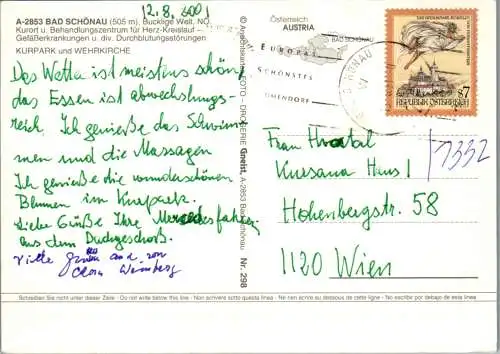 12. 8. 2001
A-2853 BAD SCHÖNAU (505 m), Bucklige Welt, NÖ
Kurort u. Behandlungszentrum für Herz-Kreislauf -
Gefäßerkrankungen u. div. Durchblutungsstörungen
KURPARK und WEHRKIRCHE
Das Wetter ist meistens schön,
das Essen ist abwechslungs-
reich. Ich genieße das Schwim
men und die Massagen
Ich genieße die wunderschönen
Blumen im Kurpark.
Liebe Grüße Ihre
aus dem Dachgeschoß.
Viele von
© Ansichtskarte FOTO - DROGERIE Gneist, A-2853 Bad Schönau Nr. 298
Österreich
AUSTRIA
BAD SCHÖNAU
EUROPAS
SCHÖNSTES
BLUMENDORF
S7
REPUBLIK ÖSTERREICH
Frau Hrabal
Kursana Haus I
1332
Hohenbergstr. 58
1120 Wien
Schreiben Sie nicht unter dieser Zeile - Do not write below this line - Non scrivere sotto questa linea - Ne rien ecrire au dessous de cette ligne - No escribir por debajo de esta linea